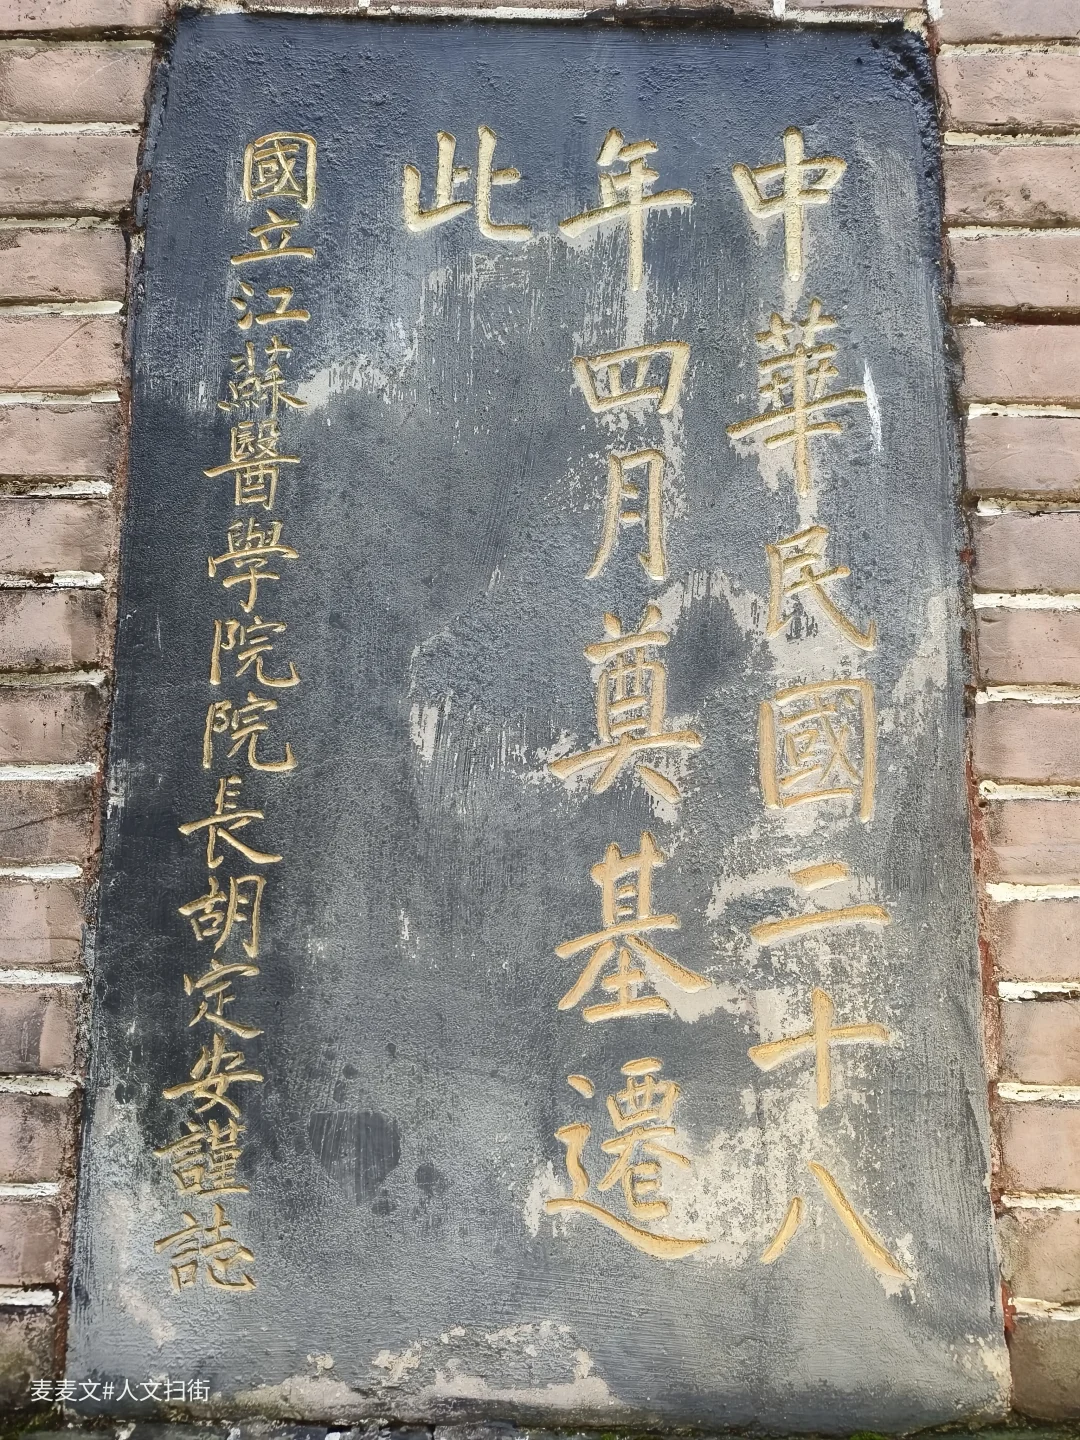 中華民國二十八
年四月奠基遷
此
國立江蘇醫學院院長胡定安謹誌
麦麦文#人文扫街